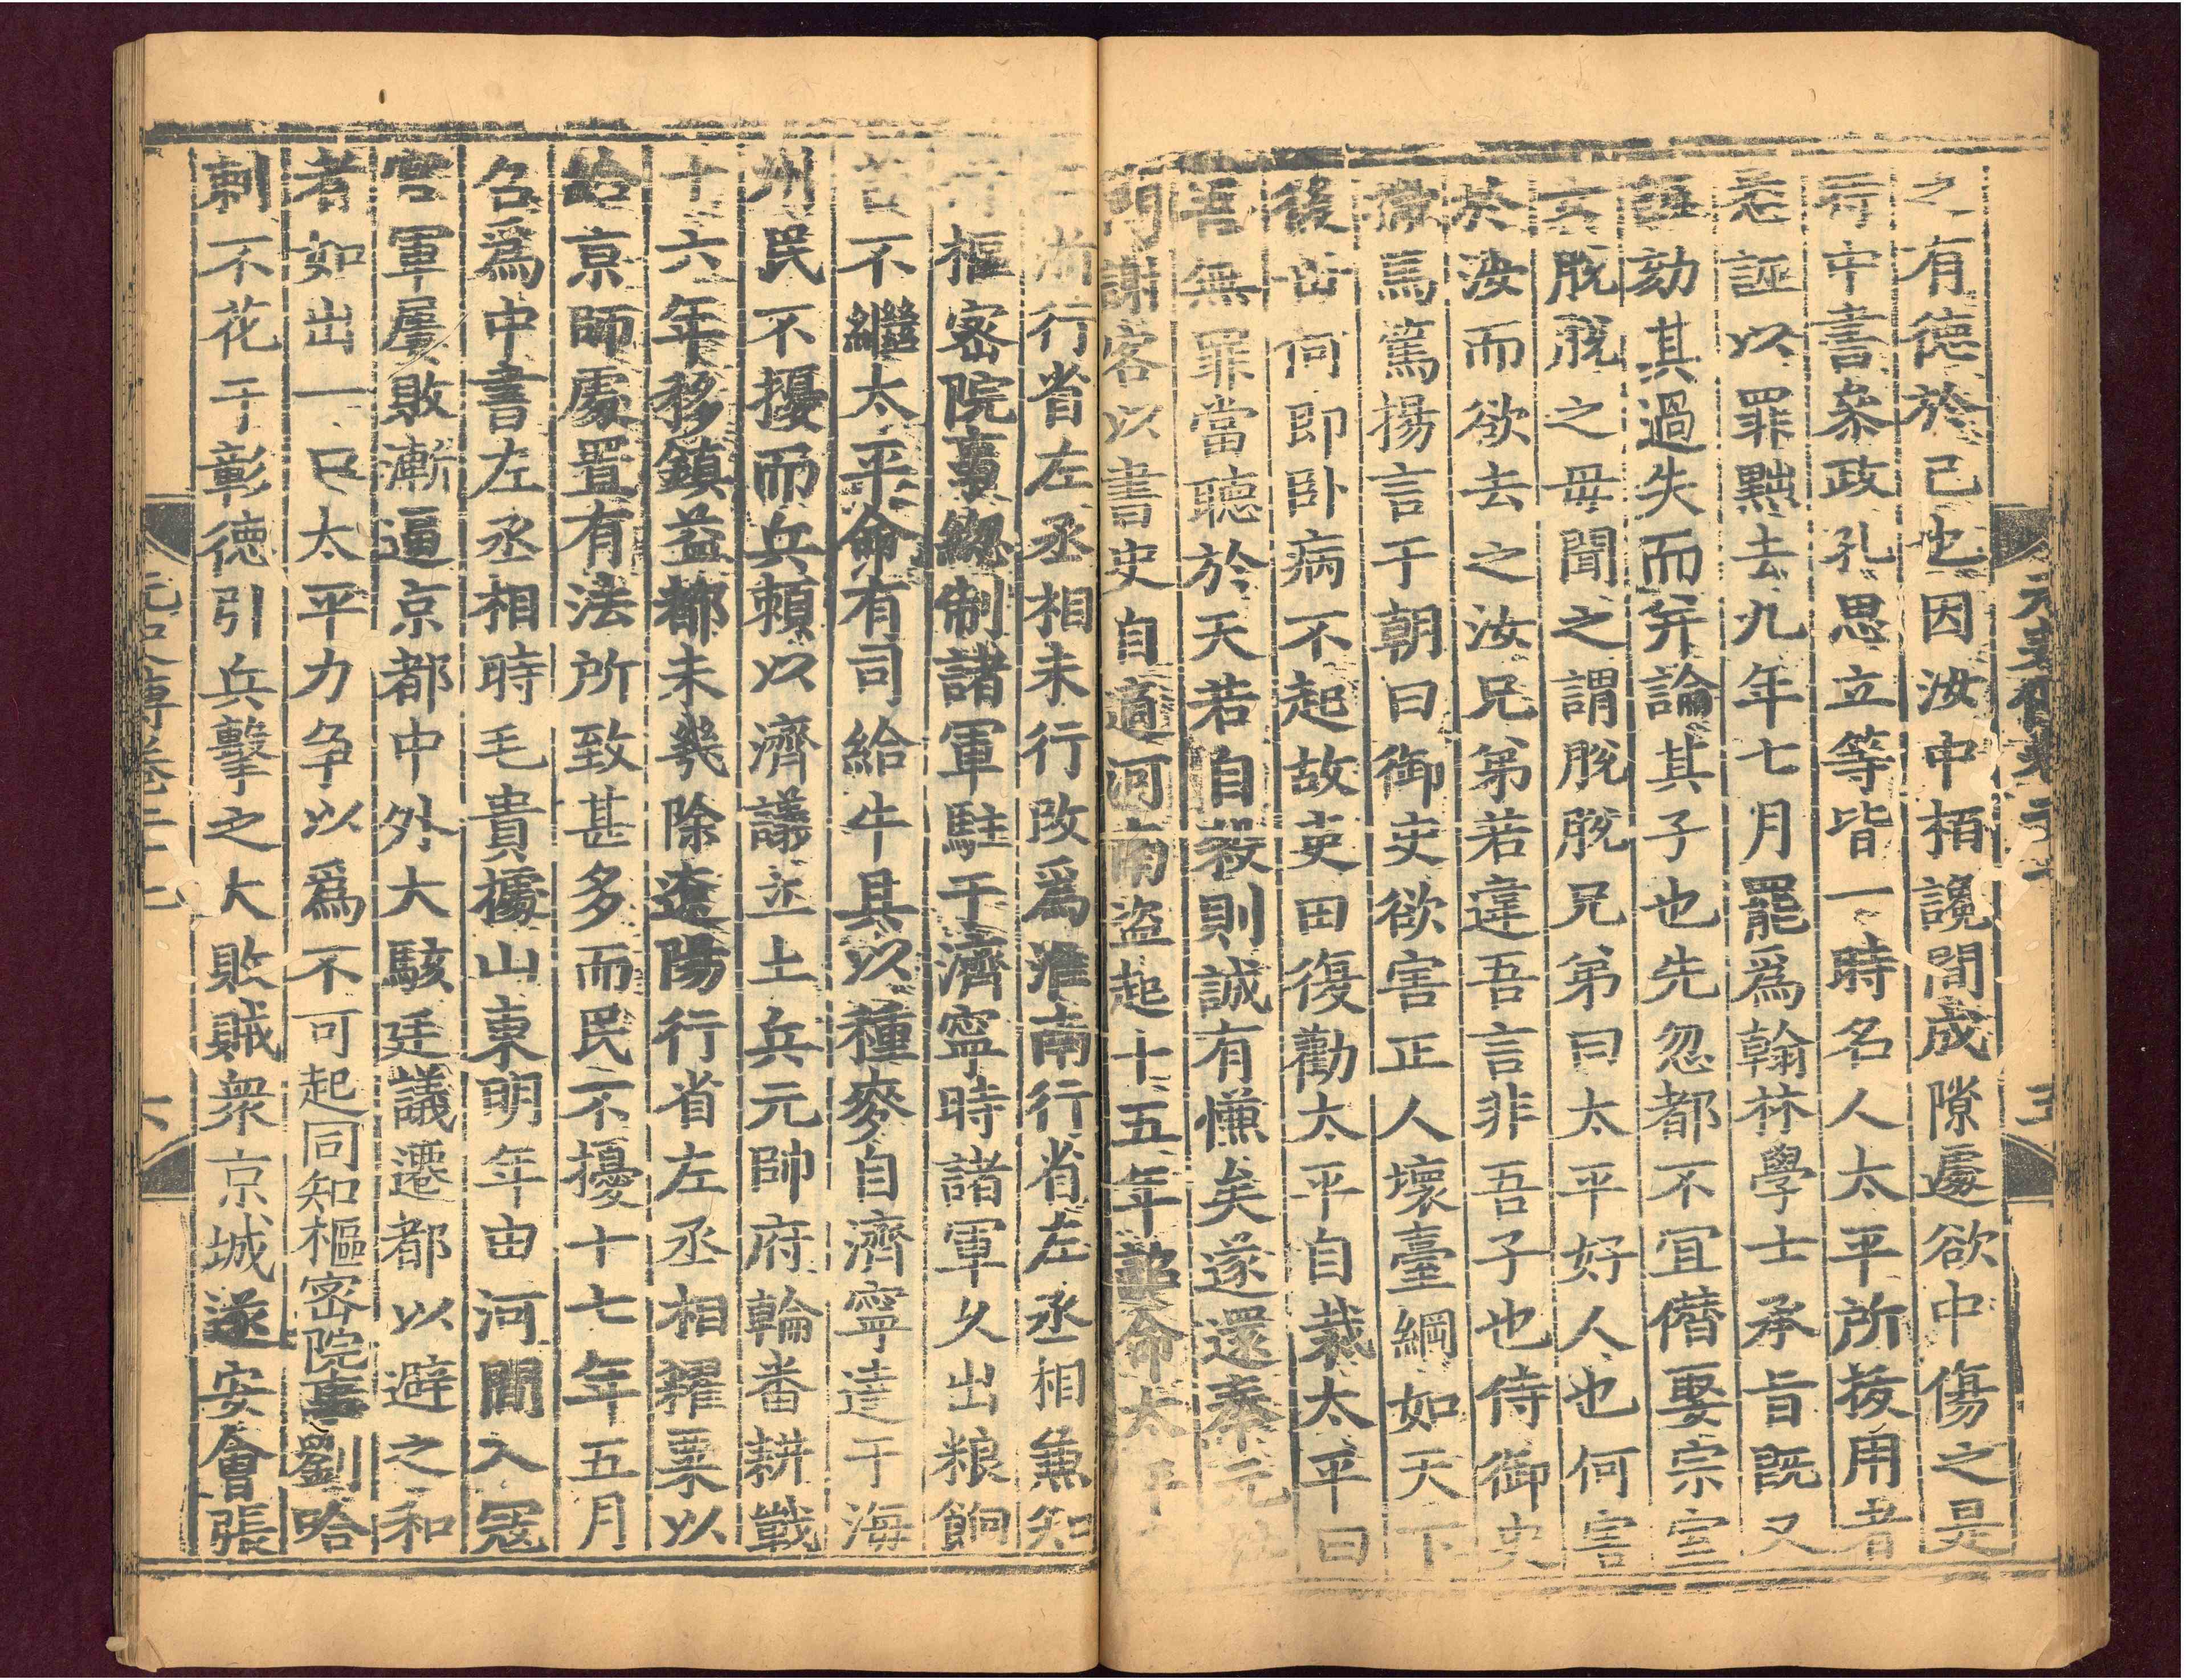 之有德於己也因汝中栢讒間成隙處欲中傷之是
行中書叅政孔思立等皆一時名人太平所拔用者
悉誣以罪黜去九年七月罷爲翰林學士承旨既又
誣劾其過失而并論其子也先忽都不宜僭娶宗室
女脫脫之母聞之謂脫脫兄弟曰太平好人也何害
於汝而欲去之汝兄弟若違吾言非吾子也侍御史
撒馬篤揚言于朝曰御史欲害正人壞臺綱如天下
後世何即卧病不起故吏田復勸太平自裁太平曰
吾無罪當聽於天若自殺則誠有慊矣遂還奉元
門謝客以書史自適河南盗起十五年詔命太平
浙行省左丞相未行改爲淮南行省左丞相兼知
行樞密院事緫制諸軍駐于濟寧時諸軍久出粮餉
苦不繼太平命有司給牛具以種麥自濟寧達于海
州民不擾而兵賴以濟議立土兵元帥府輪番耕戰
十六年移鎮益都未㡬除遼陽行省左丞相糴粟以
給京師處置有法所致甚多而民不擾十七年五月
召爲中書左丞相時毛貴據山東明年由河間入寇
官軍屢敗漸逼京都中外大駭廷議遷都以避之和
者如出一口太平力争以爲不可起同知樞密院事劉哈
剌不花于彰德引兵擊之大敗賊衆京城遂安會張
元史傳卷二十七
六